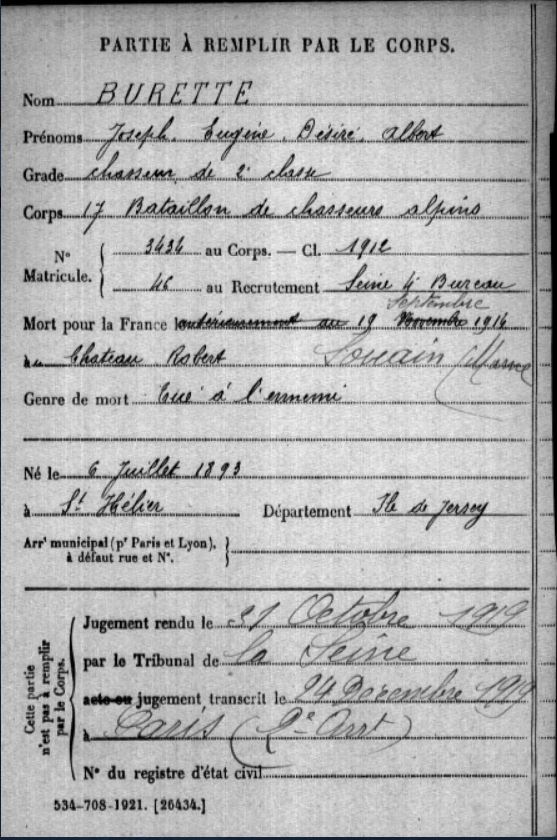 PARTIE À REMPLIR PAR LE CORPS.
Nom BURETTE
Prénoms Joseph, Eugène, Désiré, Albert
Grade chasseur de 2e classe
Corps 17 Bataillon de chasseurs alpins
N° Matricule. { 3434 au Corps. — Cl. 1912
46 au Recrutement Seine 4e Bureau
Septembre
Mort pour la France antérieurement au 19 Novembre 1916
à Chateau Robert Souain (Marne
Genre de mort Tué à l'ennemi
Né le 6 Juillet 1893
à St Hélier Département Ile de Jersey
Arrt municipal (pr Paris et Lyon), à défaut rue et N°. }
Cette partie n'est pas à remplir par le Corps. {
Jugement rendu le 21 Octobre 1919
par le Tribunal de la Seine
acte ou jugement transcrit le 24 Decembre 1919
à Paris (2e Arrt)
N° du registre d'état civil
534-708-1921. [26434.]